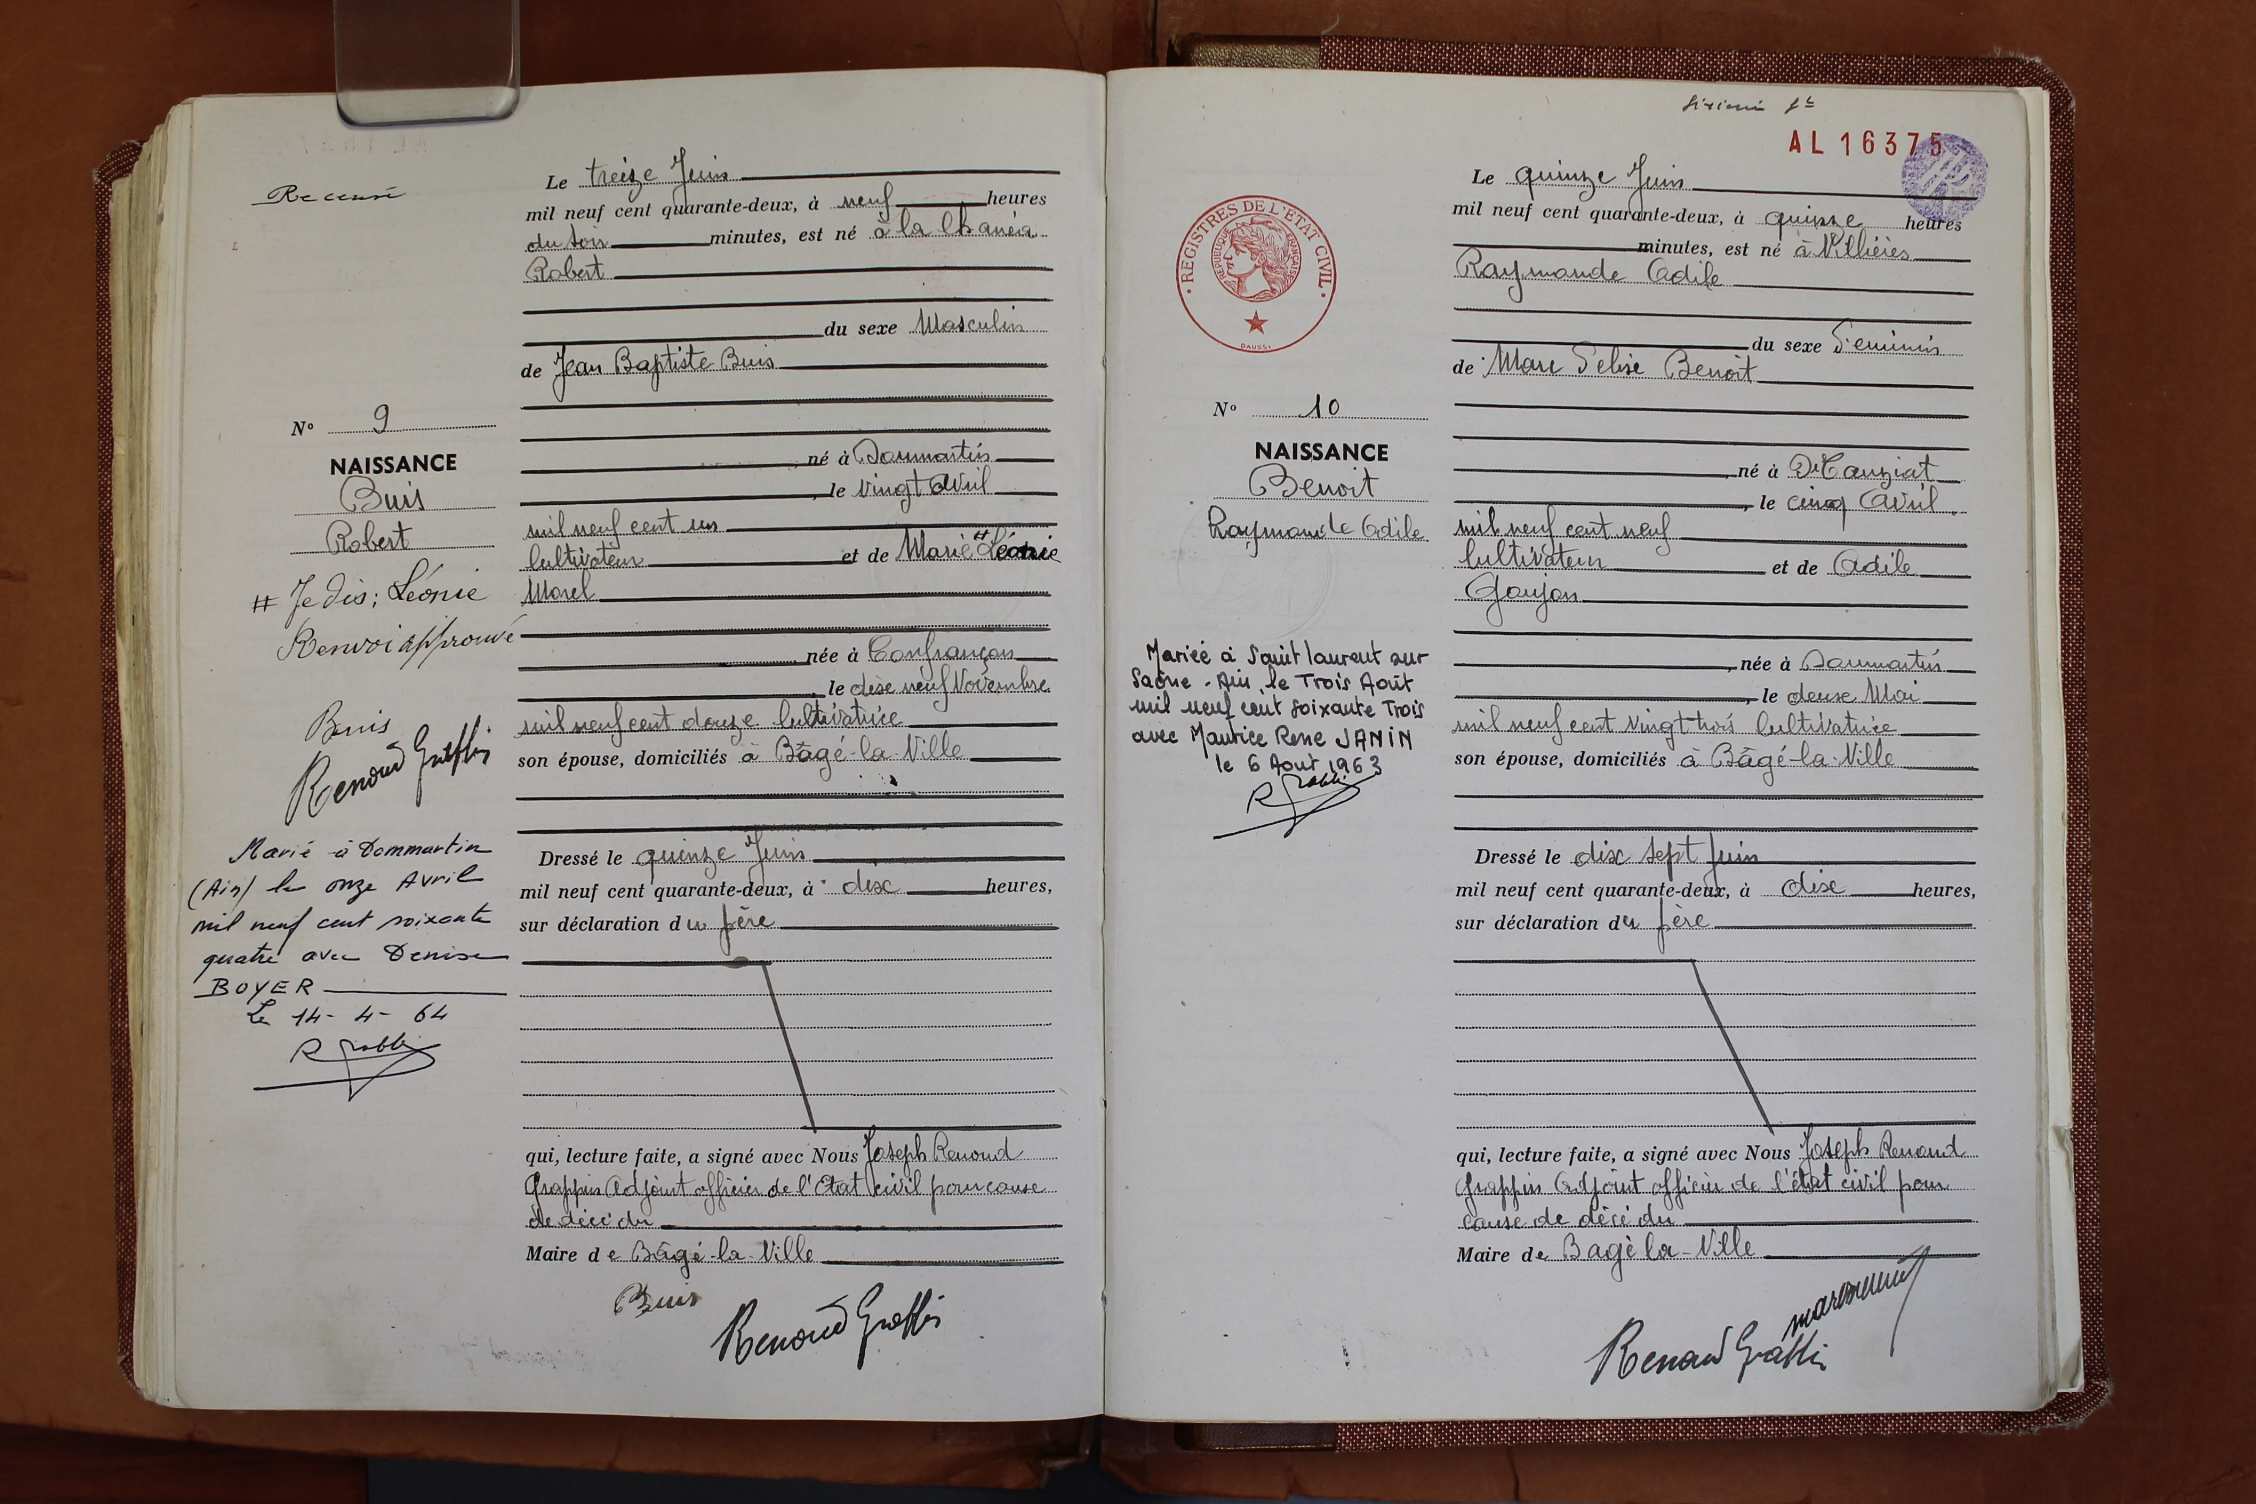 Recensé
Le treize Juin
mil neuf cent quarante-deux, à neuf heures
du soir minutes, est né à la
Robert
du sexe Masculin
de Jean Baptiste Buis
né à Dommartin
, le vingt Avril
mil neuf cent un
Cultivateur et de Marie # Léonie
Morel
née à Confrançon
, le dixe neuf Novembre
mil neuf cent douze Cultivatrice
son épouse, domiciliés à Bâgé-la-Ville
Dressé le quinze Juin
mil neuf cent quarante-deux, à dix heures,
sur déclaration du père
qui, lecture faite, a signé avec Nous Joseph Renoud
Grappin Adjoint officier de l'Etat civil pour cause
de décé du
Maire de Bâgé-la-Ville
Buis
Renoud Grappin
N° 9
NAISSANCE
Buis
Robert
# Je dis: Léonie
Renvoi approuvé
Buis
Renoud Grappin
Marié à Dommartin
(Ain) le onze Avril
mil neuf cent soixante
quatre avec Denise
BOYER
Le 14-4-64
R Grappin
AL 16375
Le quinze Juin
mil neuf cent quarante-deux, à quinze heures
minutes, est né à
Raymonde Odile
du sexe Féminin
de Marc Félise Benoit
né à
, le cinq Avril
mil neuf cent neuf
Cultivateur et de Odile
Goujon
, née à Dommartin
, le deuxe Mai
mil neuf cent vingt trois Cultivatrice
son épouse, domiciliés à Bâgé-la-Ville
Dressé le dix sept Juin
mil neuf cent quarante-deux, à dixe heures,
sur déclaration du père
qui, lecture faite, a signé avec Nous Joseph Renoud
Grappin Adjoint officier de l'état civil pour
cause de décé du
Maire de Bagé la-Ville
Renoud Grappin
REGISTRES DE L'ETAT CIVIL
REPUBLIQUE FRANÇAISE
DAUSSY
N° 10
NAISSANCE
Benoit
Raymonde Odile
Mariée à Saint laurent sur
Saône - Ain, le Trois Août
mil neuf cent soixante Trois
avec Maurice Rene JANIN
le 6 Août 1963
R Grappin